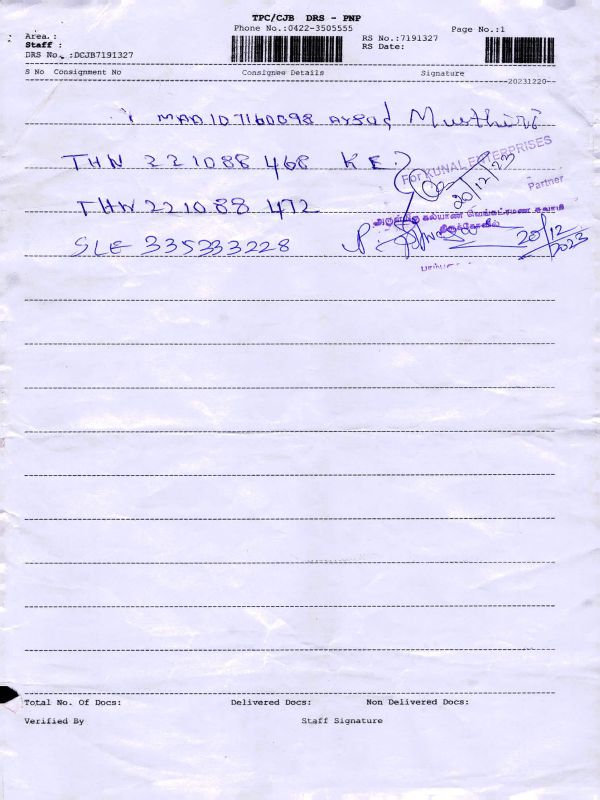 TPC/CJB DRS - PNP
Phone No.:0422-3505555
Page No.:1
Area :
RS No.:7191327
Staff :
RS Date:
DRS No. :DCJB7191327
S No Consignment No Consignee Details Signature
20231220
MAA107160098
THN 221088 468 K E.
For KUNAL ENTERPRISES
20/12/23
Partner
THN 221088 472
அருள்மிகு கல்யாண வெங்கட்ரமண சுவாமி
திருக்கோவில்
SLE 335233228
20/12
2023
Total No. Of Docs: Delivered Docs: Non Delivered Docs:
Verified By Staff Signature